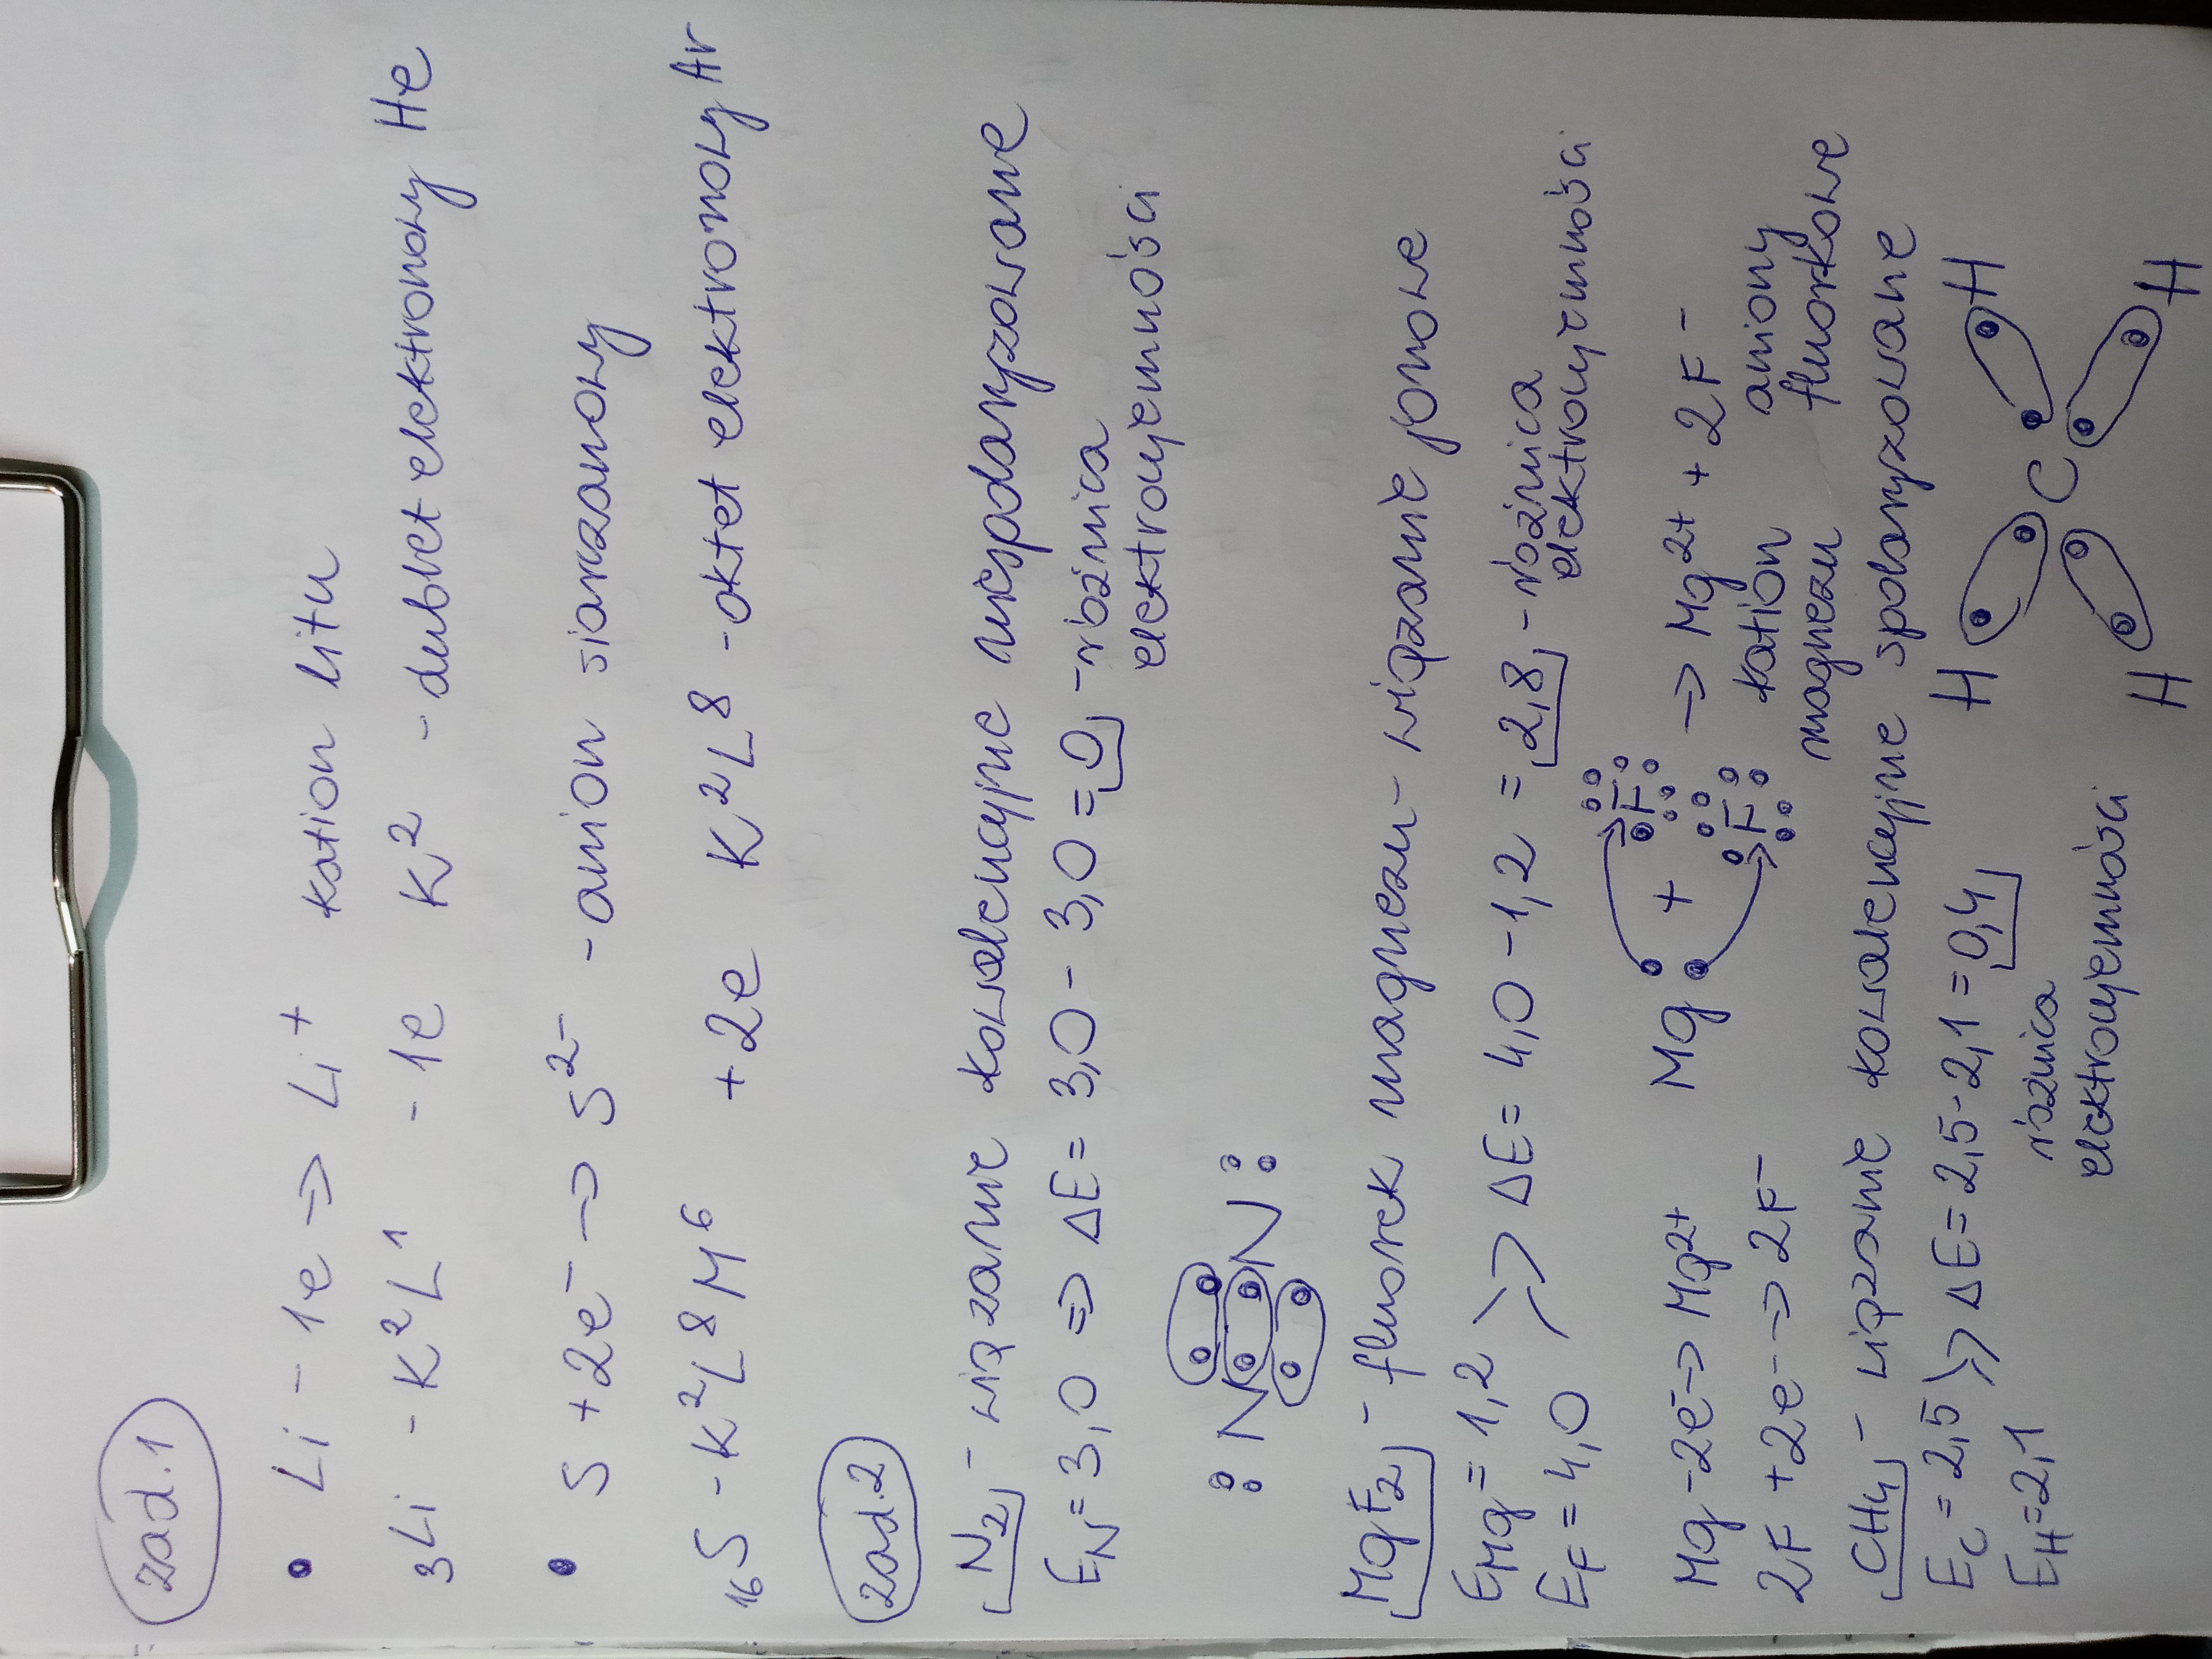 zad.1
• Li - 1e → Li⁺ kation litu
₃Li - K²L¹ - 1e K² - dublet elektronowy He
• S + 2e⁻ → S²⁻ - anion siarczanowy
₁₆S - K²L⁸M⁶ +2e K²L⁸ - oktet elektronowy Ar
zad.2
N₂ - wiązanie kowalencyjne niespolaryzowane
E_N = 3,0 ⇒ ΔE = 3,0 - 3,0 = 0 - różnica
elektroujemności
:N N:
MgF₂ - fluorek magnezu - wiązanie jonowe
E_Mg = 1,2
E_F = 4,0 ⇒ ΔE = 4,0 - 1,2 = 2,8 - różnica
elektroujemności
Mg - 2e⁻ → Mg²⁺ Mg + F F → Mg²⁺ + 2F⁻
2F + 2e⁻ → 2F⁻ kation magnezu aniony fluorkowe
CH₄ - wiązanie kowalencyjne spolaryzowane
E_C = 2,5
E_H = 2,1 ⇒ ΔE = 2,5 - 2,1 = 0,4
różnica
elektroujemności
H H
C
H H